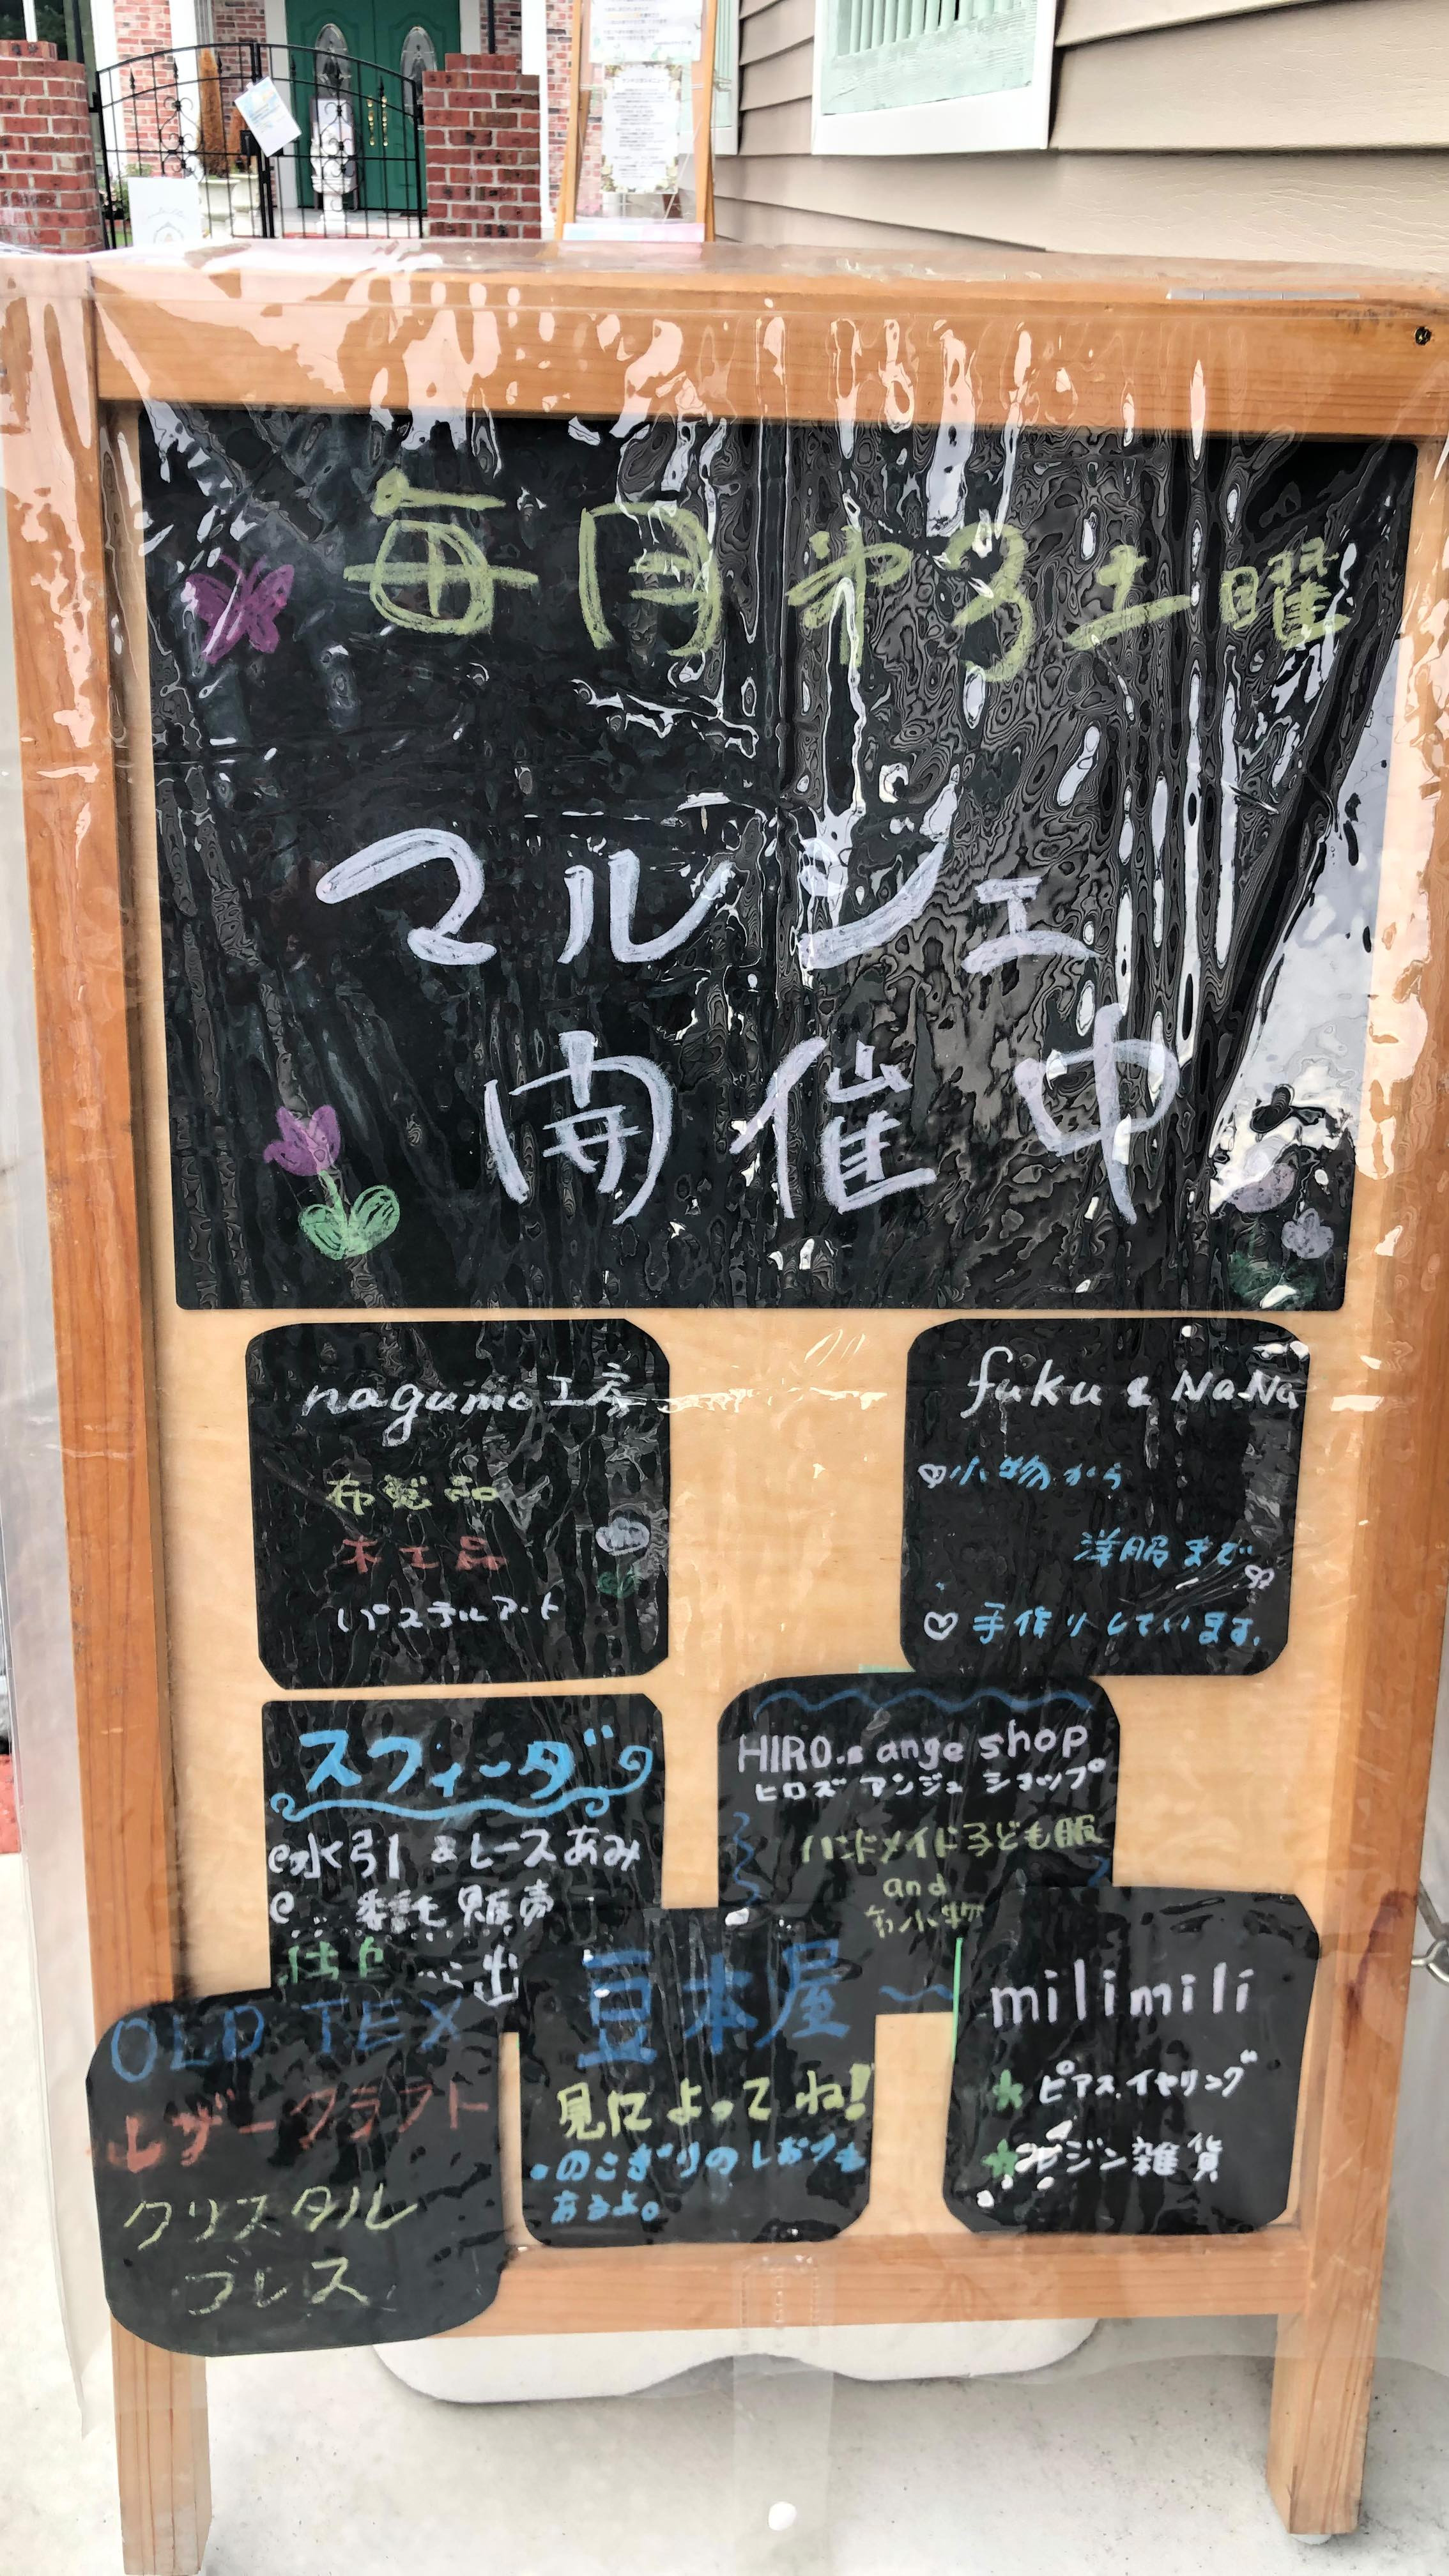 毎月第3土曜
マルシェ
開催中
nagumo工房
布製品
木工品
パステルアート
fuku & NaNa
小物から
洋服まで
手作りしています。
スフィーダ
水引 & レースあみ
委託販売
出
HIRO.s ange shop
ヒロズ アンジュ ショップ
ハンドメイド子ども服
and
布小物
OLD TEX
レザークラフト
クリスタル
ブレス
豆本屋
見によってね!
・のこぎりのしおりも
あるよ。
milimili
★ピアス、イヤリング
★レジン雑貨